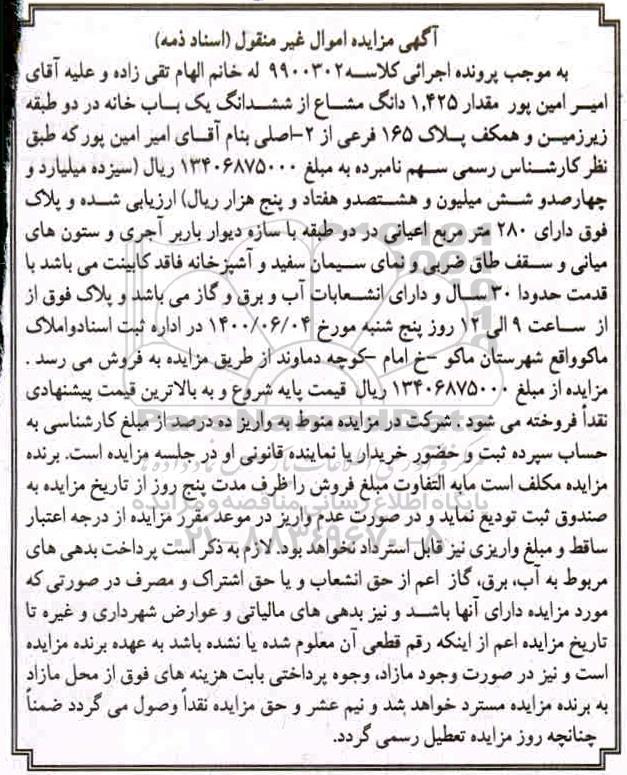 آگهی مزایده اموال غیر منقول (اسناد ذمه)
به موجب پرونده اجرائی کلاسه۹۹۰۰۳۰۲ له خانم الهام تقی زاده و علیه آقای
امیر امین پور مقدار ۱,۴۲۵ دانگ مشاع از ششدانگ یک باب خانه در دو طبقه
زیرزمین و همکف پلاک ۱۶۵ فرعی از ۲-اصلی بنام آقای امیر امین پور که طبق
نظر کارشناس رسمی سهم نامبرده به مبلغ ۱۳۴۰۶۸۷۵۰۰۰ ریال (سیزده میلیارد و
چهارصدو شش میلیون و هشتصدو هفتاد و پنج هزار ریال) ارزیابی شده و پلاک
فوق دارای ۲۸۰ متر مربع اعیانی در دو طبقه با سازه دیوار باربر آجری و ستون های
میانی و سقف طاق ضربی و نمای سیمان سفید و آشپزخانه فاقد کابینت می باشد با
قدمت حدودا ۳۰ سال و دارای انشعابات آب و برق و گاز می باشد و پلاک فوق از
از ساعت ۹ الی ۱۲ روز پنج شنبه مورخ ۱۴۰۰/۰۶/۰۴ در اداره ثبت اسنادواملاک
ماکوواقع شهرستان ماکو -خ امام -کوچه دماوند از طریق مزایده به فروش می رسد .
مزایده از مبلغ ۱۳۴۰۶۸۷۵۰۰۰ ریال قیمت پایه شروع و به بالاترین قیمت پیشنهادی
نقداً فروخته می شود . شرکت در مزایده منوط به واریز ده درصد از مبلغ کارشناسی به
حساب سپرده ثبت و حضور خریدار یا نماینده قانونی او در جلسه مزایده است. برنده
مزایده مکلف است مابه التفاوت مبلغ فروش را ظرف مدت پنج روز از تاریخ مزایده به
صندوق ثبت تودیع نماید و در صورت عدم واریز در موعد مقرر مزایده از درجه اعتبار
ساقط و مبلغ واریزی نیز قابل استرداد نخواهد بود. لازم به ذکر است پرداخت بدهی های
مربوط به آب، برق، گاز اعم از حق انشعاب و یا حق اشتراک و مصرف در صورتی که
مورد مزایده دارای آنها باشد و نیز بدهی های مالیاتی و عوارض شهرداری و غیره تا
تاریخ مزایده اعم از اینکه رقم قطعی آن معلوم شده یا نشده باشد به عهده برنده مزایده
است و نیز در صورت وجود مازاد، وجوه پرداختی بابت هزینه های فوق از محل مازاد
به برنده مزایده مسترد خواهد شد و نیم عشر و حق مزایده نقداً وصول می گردد ضمناً
چنانچه روز مزایده تعطیل رسمی گردد.